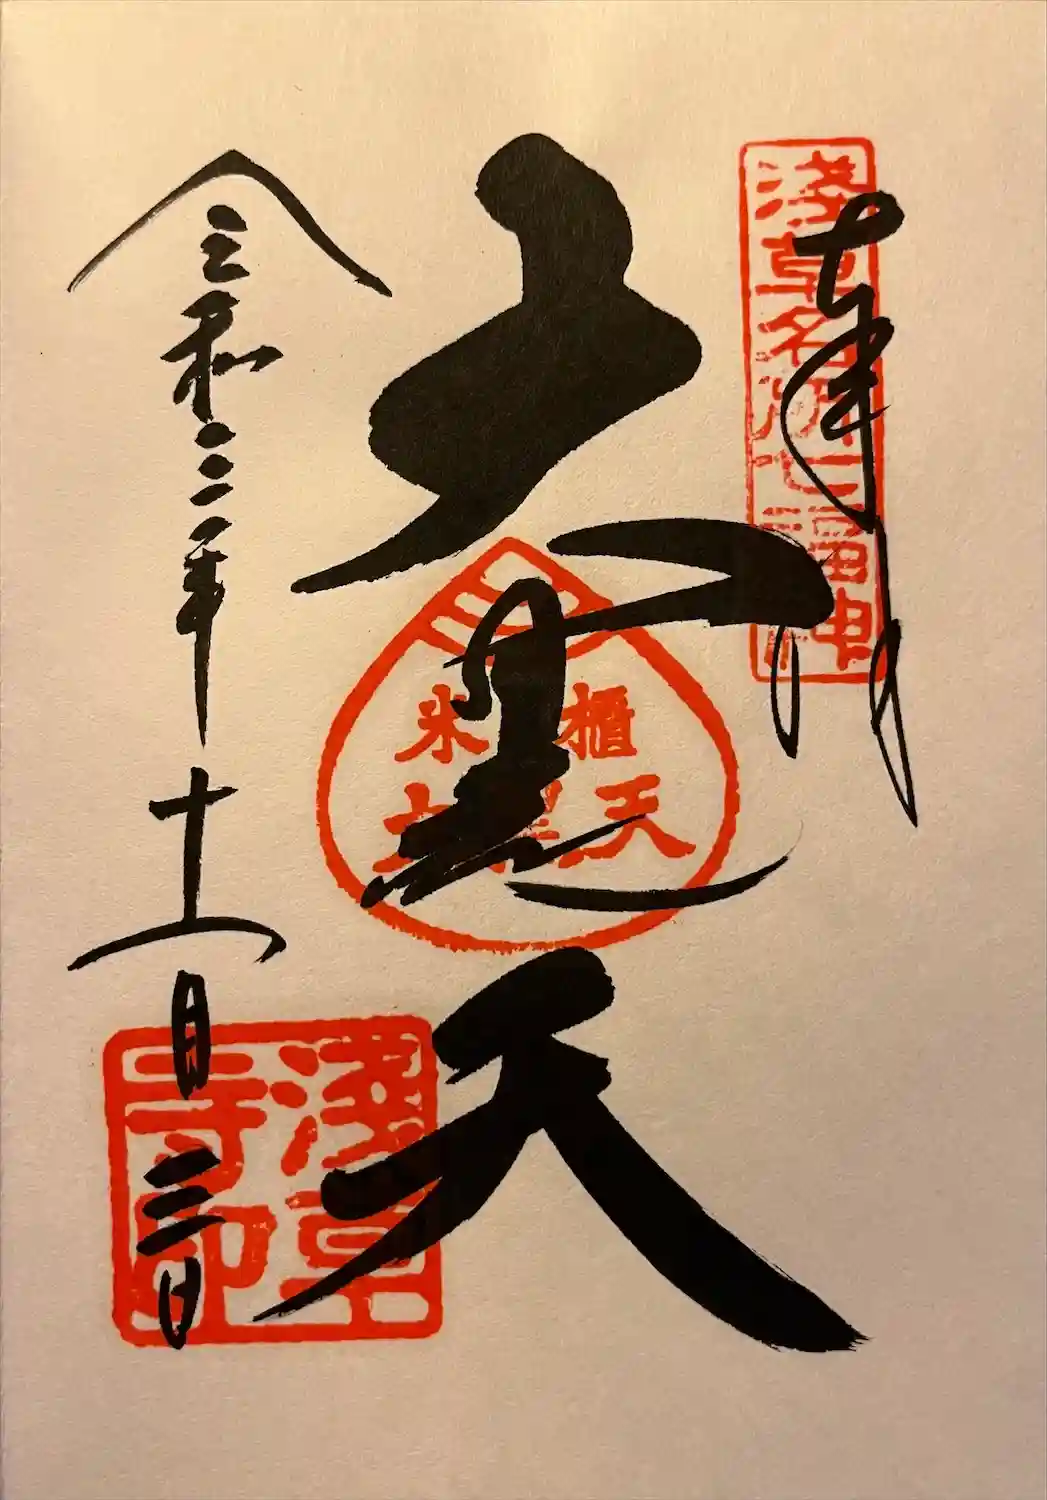 淺草名所七福神
奉拝
大黒天
米櫃
大黒天
令和三年十一月三日
淺草寺印